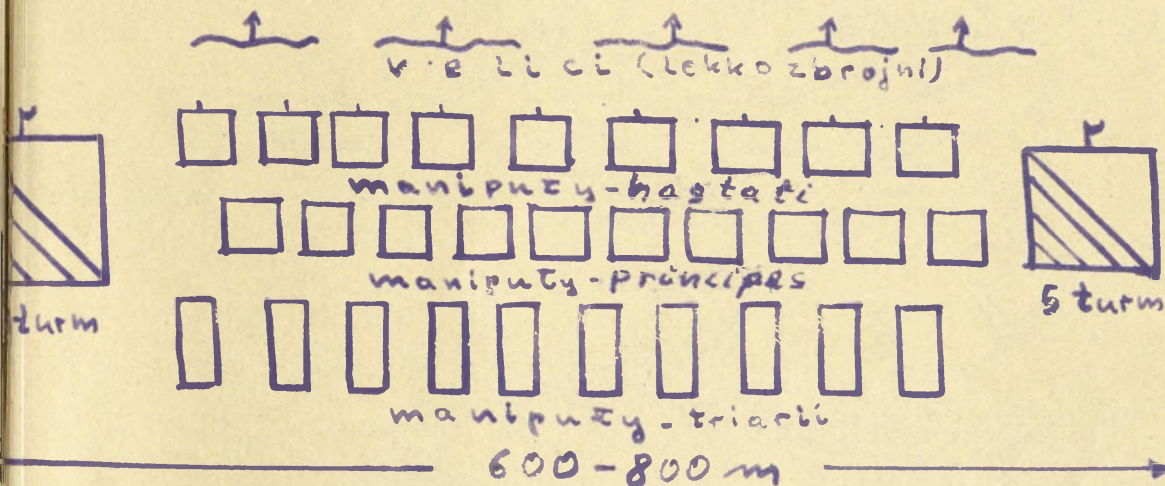 velici (lekkozbrojni)
manipuły-hastati
manipuły-principes
turm
5 turm
manipuły-triarii
600-800 m